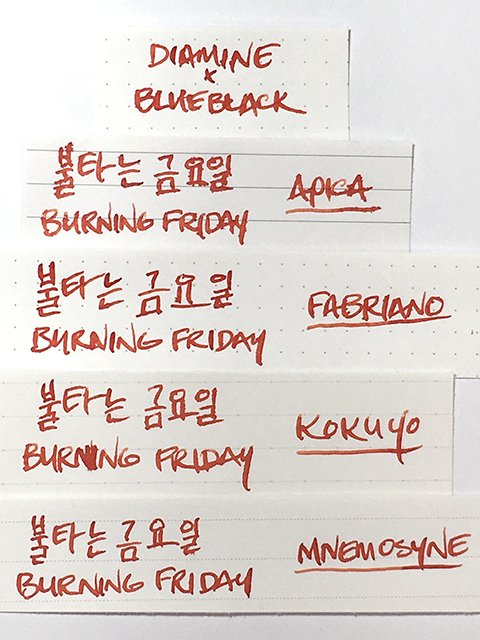 DIAMINE
x
BLUEBLACK
불타는 금요일
APICA
BURNING FRIDAY
불타는 금요일
FABRIANO
BURNING FRIDAY
불타는 금요일
KOKUYO
BURNING FRIDAY
불타는 금요일
MNEMOSYNE
BURNING FRIDAY